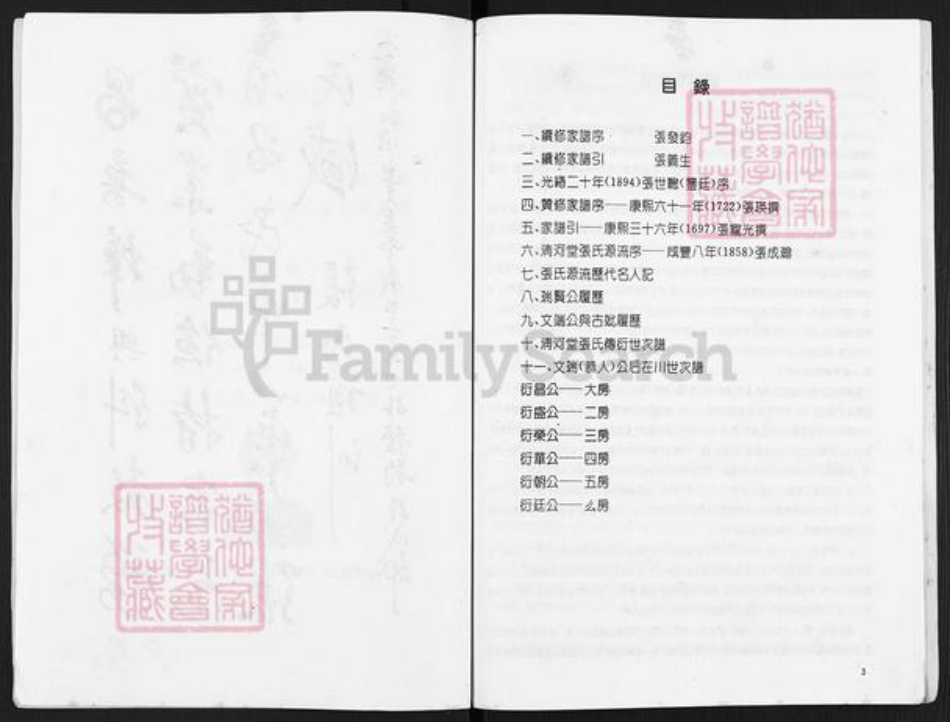 目錄
一、續修家譜序 張發鈞
二、續修家譜引 張義生
三、光緒二十年(1894)張世聰(豐廷)序
四、黄修家譜序——康熙六十一年(1722)張瑛撰
五、家譜引——康熙三十六年(1697)張寵光撰
六、清河堂張氏源流序——咸豐八年(1858)張成翰
七、張氏源流歷代名人記
八、瑞賢公履歷
九、文端公與古妣履歷
十、清河堂張氏傳衍世次譜
十一、文端(恭人)公后在川世次譜
衍昌公——大房
衍盛公——二房
衍榮公——三房
衍華公——四房
衍朝公——五房
衍廷公——么房
3
FamilySearch
猶他家譜學會收藏
猶他家譜學會收藏